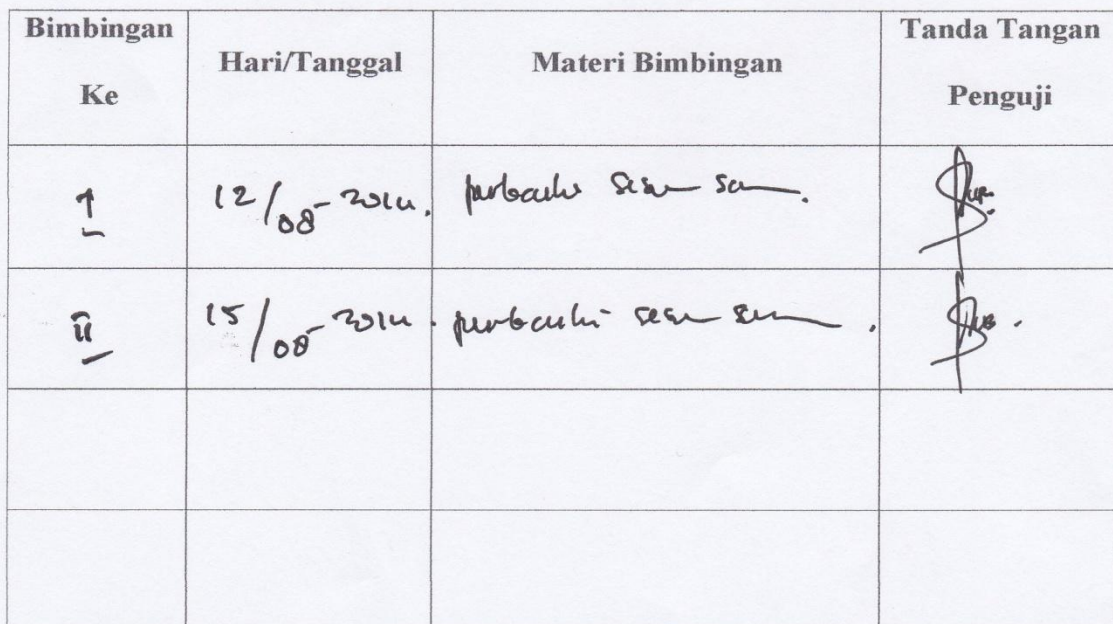 Bimbingan Ke
Hari/Tanggal
Materi Bimbingan
Tanda Tangan Penguji
I
12/08-2014. perbaiki sesuai saran.
II
15/08-2014. perbaiki sesuai saran.